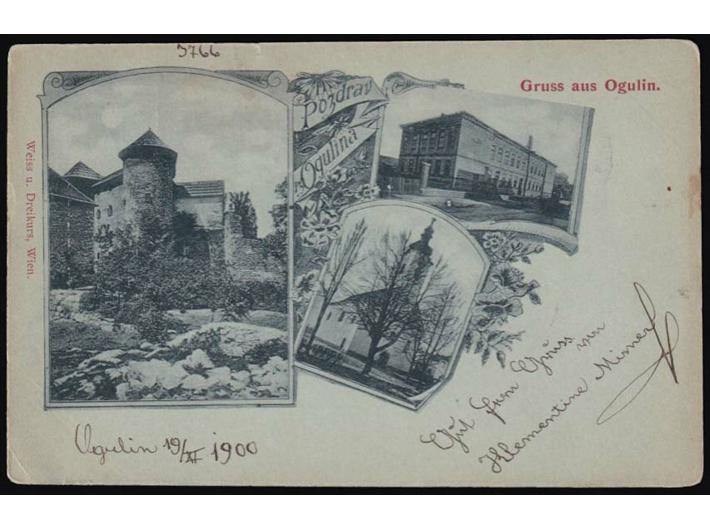 5766
Gruss aus Ogulin.
Pozdrav
Ogulina
Weiss u. Dreikurs, Wien.
Gruss von
Klementine
Ogulin 19/XI 1900